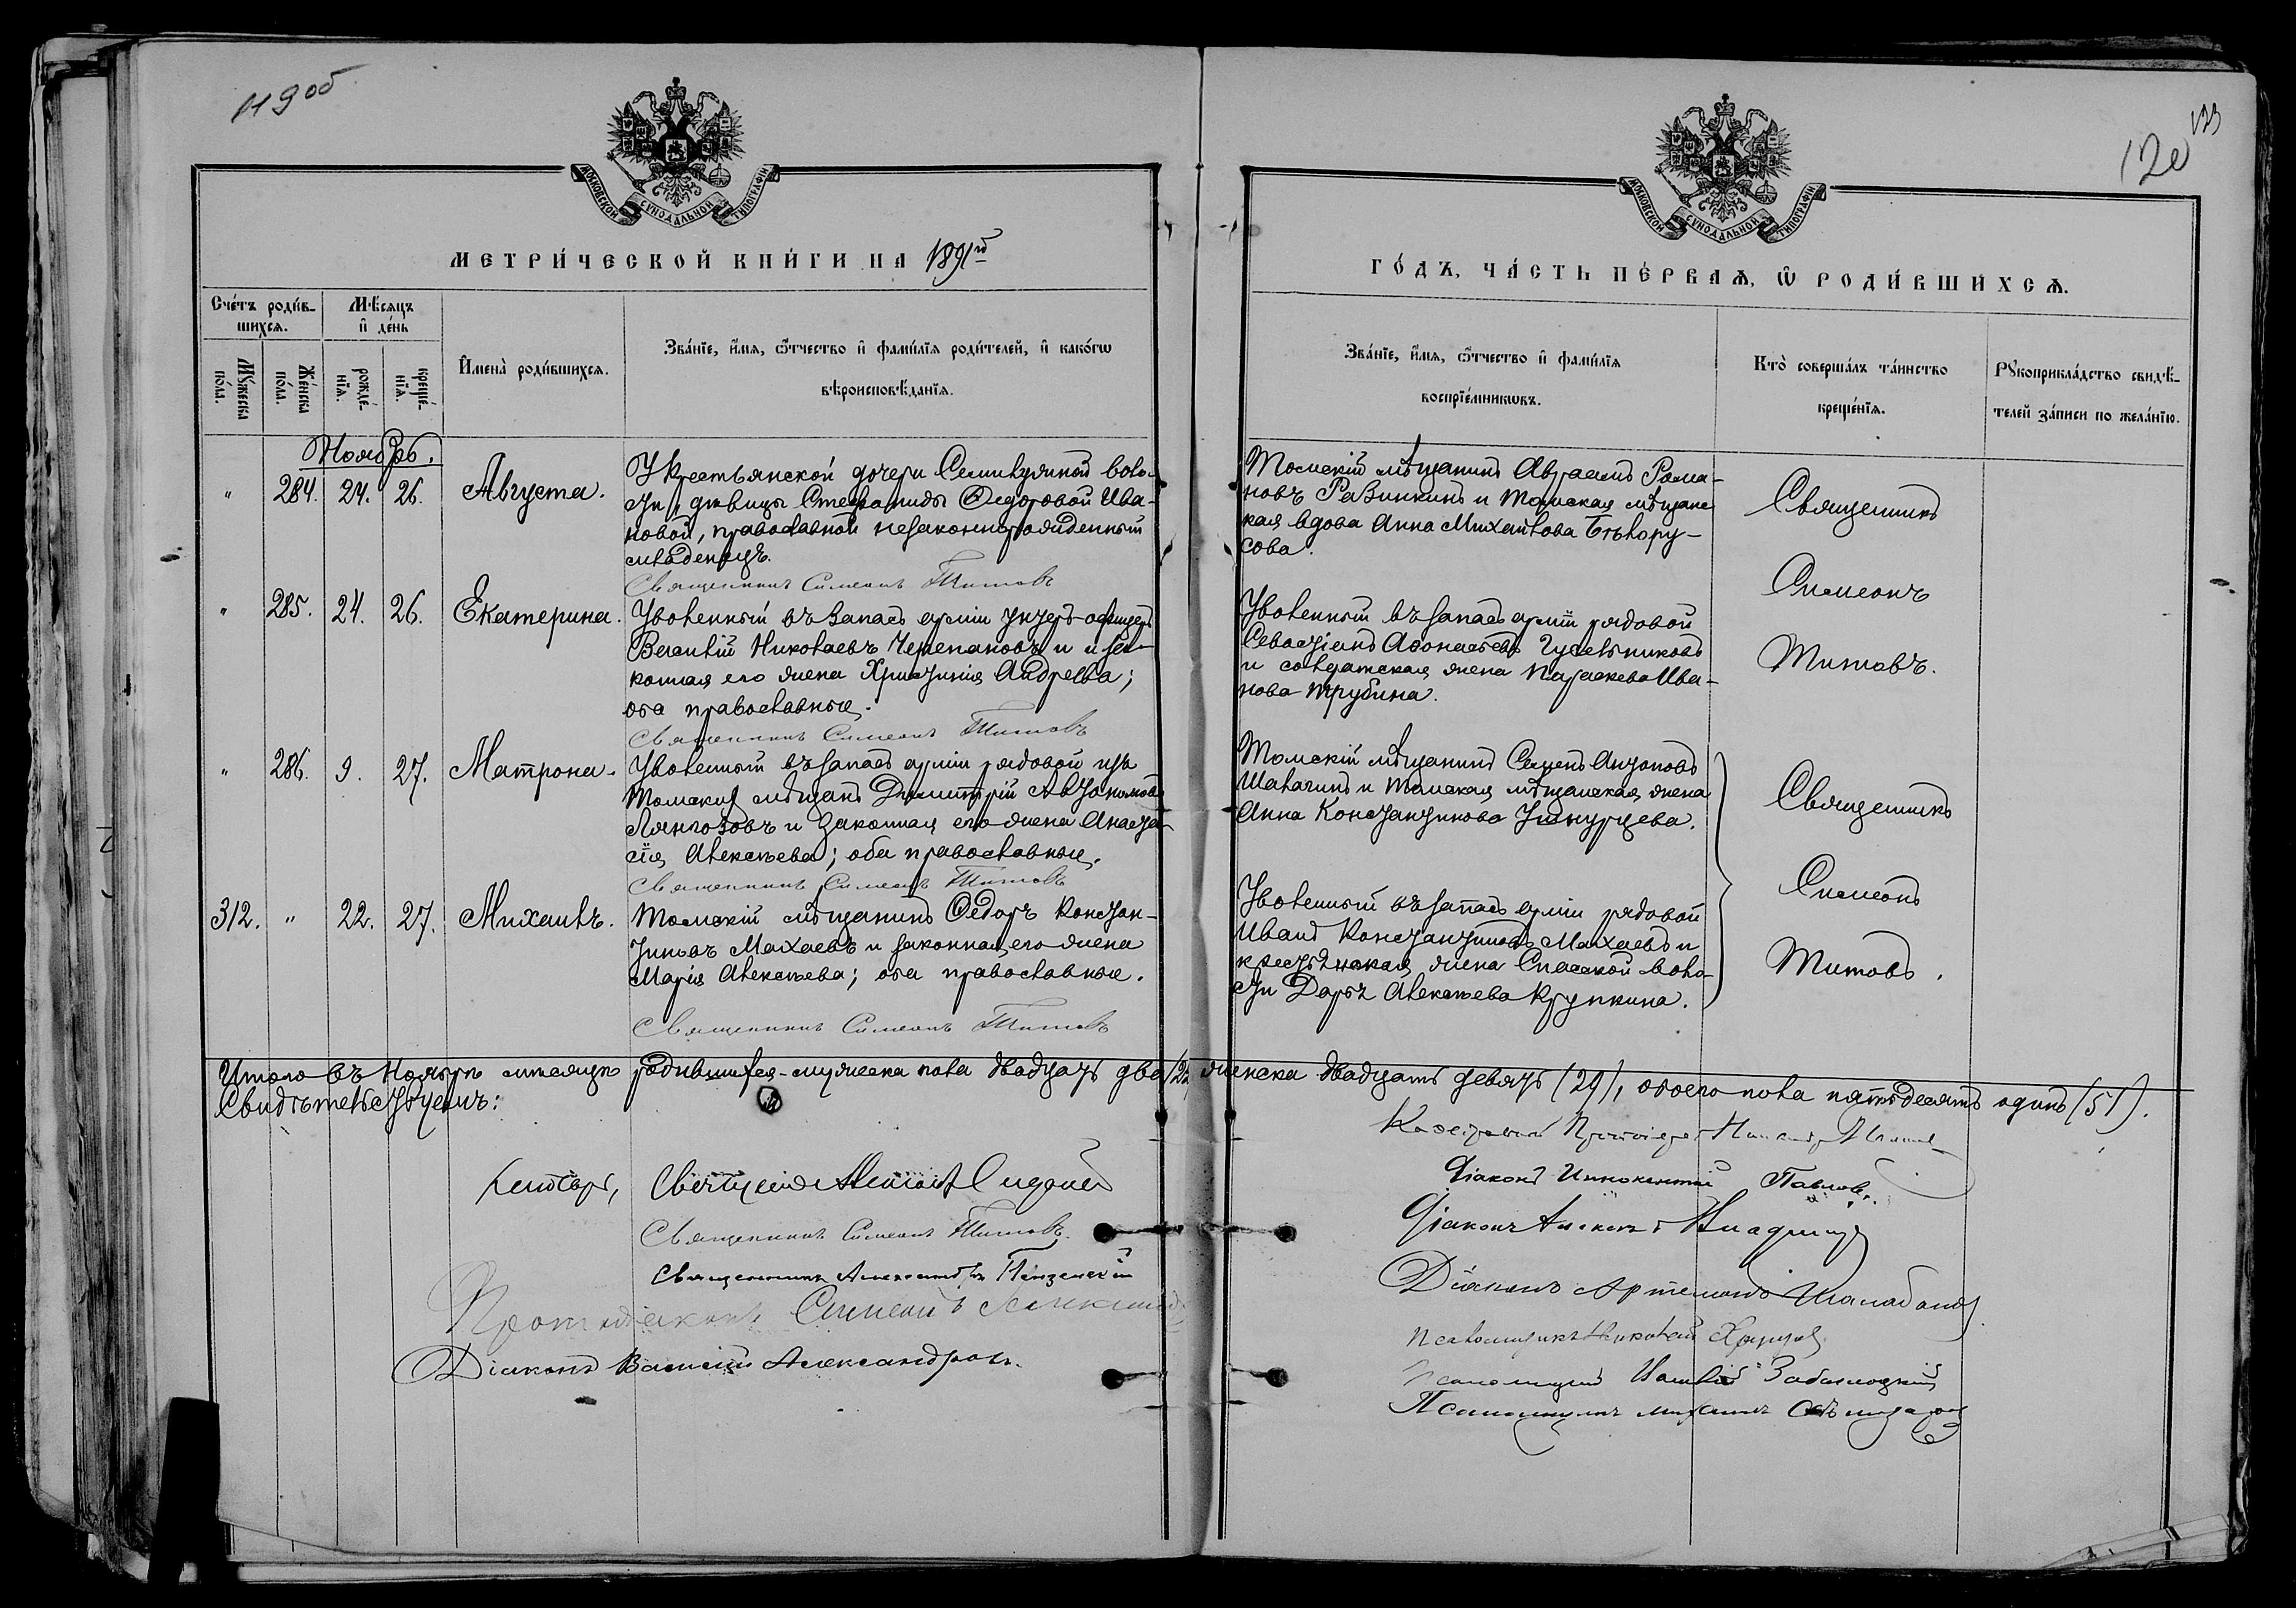 119 об
МОСКОВСКОЙ СѴНОДАЛЬНОЙ ТИПОГРАФІИ
МЕТРИ́ЧЕСКОЙ КНИ́ГИ НА 1891й
Сче́тъ роди́вшихсѧ.
Мѣ́сяцъ и҆ де́нь
Мꙋ́жеска по́ла.
Же́нска по́ла.
рожде́нїѧ.
креще́нїѧ.
И҆мена̀ роди́вшихсѧ.
Зва́нїе, и҆́мѧ, ѻ҆́тчество и҆ фами́лїѧ роди́телей, и҆ како́гѡ
вѣроисповѣ́данїѧ.
Ноябрь.
" 284. 24. 26. Августа.
У Крестьянской дочери Семилужной воло-
сти, дѣвицы Стефаниды Ѳедоровой Ива-
новой, православной незаконнорожденный
младенецъ.
Священникъ Симеонъ Титовъ
" 285. 24. 26. Екатерина.
Уволенный въ запасъ арміи унтеръ-офицеръ
Николаевъ Черепановъ и за-
конная его жена Христинія Андреева;
оба православные.
Священникъ Симеонъ Титовъ
" 286. 9. 27. Матрона.
Уволенный въ запасъ арміи рядовой изъ
Томскихъ мѣщанъ Димитрій Автономовъ
Лянгозовъ и законная его жена Анаста-
сія Алексѣева; оба православные.
Священникъ Симеонъ Титовъ
312. " 22. 27. Михаилъ.
Томскій мѣщанинъ Ѳедоръ Констан-
тиновъ Малхаевъ и законная его жена
Марія Алексѣева; оба православные.
Священникъ Симеонъ Титовъ
Итого въ Ноябрѣ мѣсяцѣ родившихся - мужеска пола двадцать два (22
Свидѣтельствуемъ:
Священникъ Симеонъ Титовъ.
Священникъ Александръ Пензенскій
Протодіаконъ Симеонъ
Діаконъ Василій Александровъ.
123
120
МОСКОВСКОЙ СѴНОДАЛЬНОЙ ТИПОГРАФІИ
ГО́ДЪ, ЧА́СТЬ ПЕ́РВАѦ, Ѡ҆ РОДИ́ВШИХСѦ.
Зва́нїе, и҆́мѧ, ѻ҆́тчество и҆ фами́лїѧ
воспрїе́мникѡвъ.
Кто̀ соверша́лъ та́инство
креще́нїѧ.
Рꙋкоприкла́дство свидѣ́-
телей за́писи по жела́нїю.
Томскій мѣщанинъ Авраамъ Рома-
новъ Разинкинъ и Томская мѣщанс
кая вдова Анна Михайлова Бѣлору-
сова.
Священникъ
Симеонъ
Титовъ.
Уволенный въ запасъ арміи рядовой
Севастіанъ Аѳонасьевъ Гусельниковъ
и солдатская жена Параскева Ива-
нова Трубина.
Томскій мѣщанинъ Семенъ Антоновъ
Шалагинъ и Томская мѣщанская жена
Анна Константинова
Священникъ
Симеонъ
Титовъ.
Уволенный въ запасъ арміи рядовой
Иванъ Константиновъ Малхаевъ и
крестьянская жена Спасской воло-
сти Дарья Алексѣева Крупкина.
женска двадцать девять (29), обоего пола пятьдесятъ одинъ (51).
Каѳедральный Протоіерей
Діаконъ Иннокентій Павловъ.
Діаконъ
Діаконъ Артемонъ Шалабановъ
Псаломщикъ Николай
Псаломщикъ Заблоцкій
Псаломщикъ Михаилъ